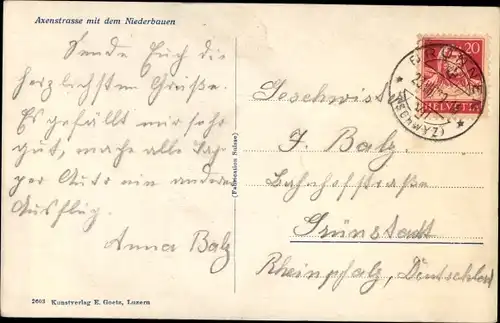 Axenstrasse mit dem Niederbauen
Sende Euch die
herzlichsten Grüße.
Es gefällt mir sehr
gut, mache alle Tag
per Auto ein anderen
Ausflug.
Anna Balz
2603 Kunstverlag E. Goetz, Luzern
(Fabrication Suisse)
20
HELVETIA
BRUNNEN
(SCHWYZ)
Geschwist.
J. Balz.
Bahnhofstraße
Grünstadt
Rheinpfalz, Deutschland